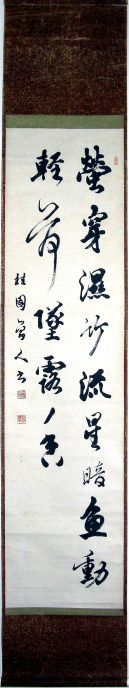 螢穿濕竹流星暗魚動
軽荷墜露香
桂園人書